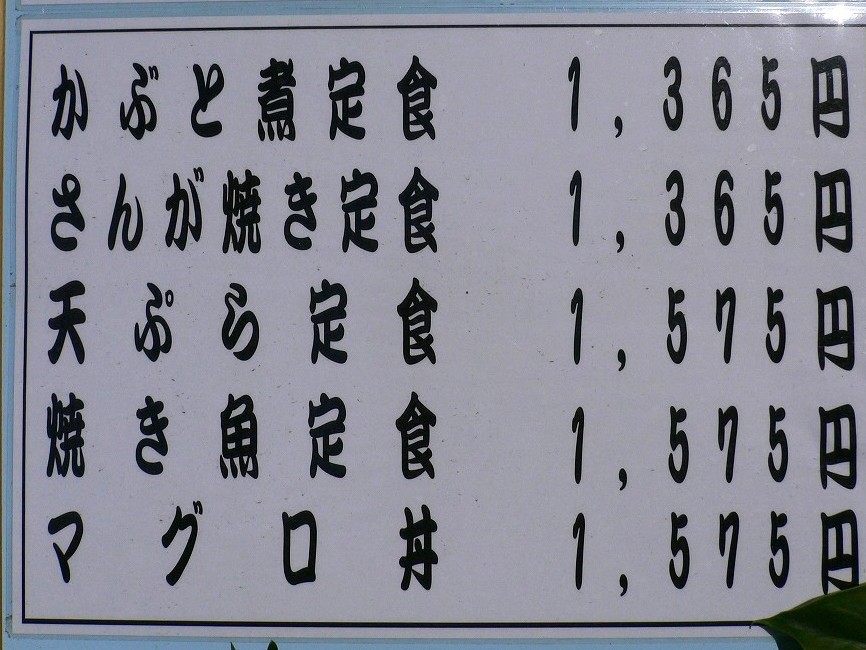 かぶと煮定食 1,365円
さんが焼き定食 1,365円
天ぷら定食 1,575円
焼き魚定食 1,575円
マグロ丼 1,575円